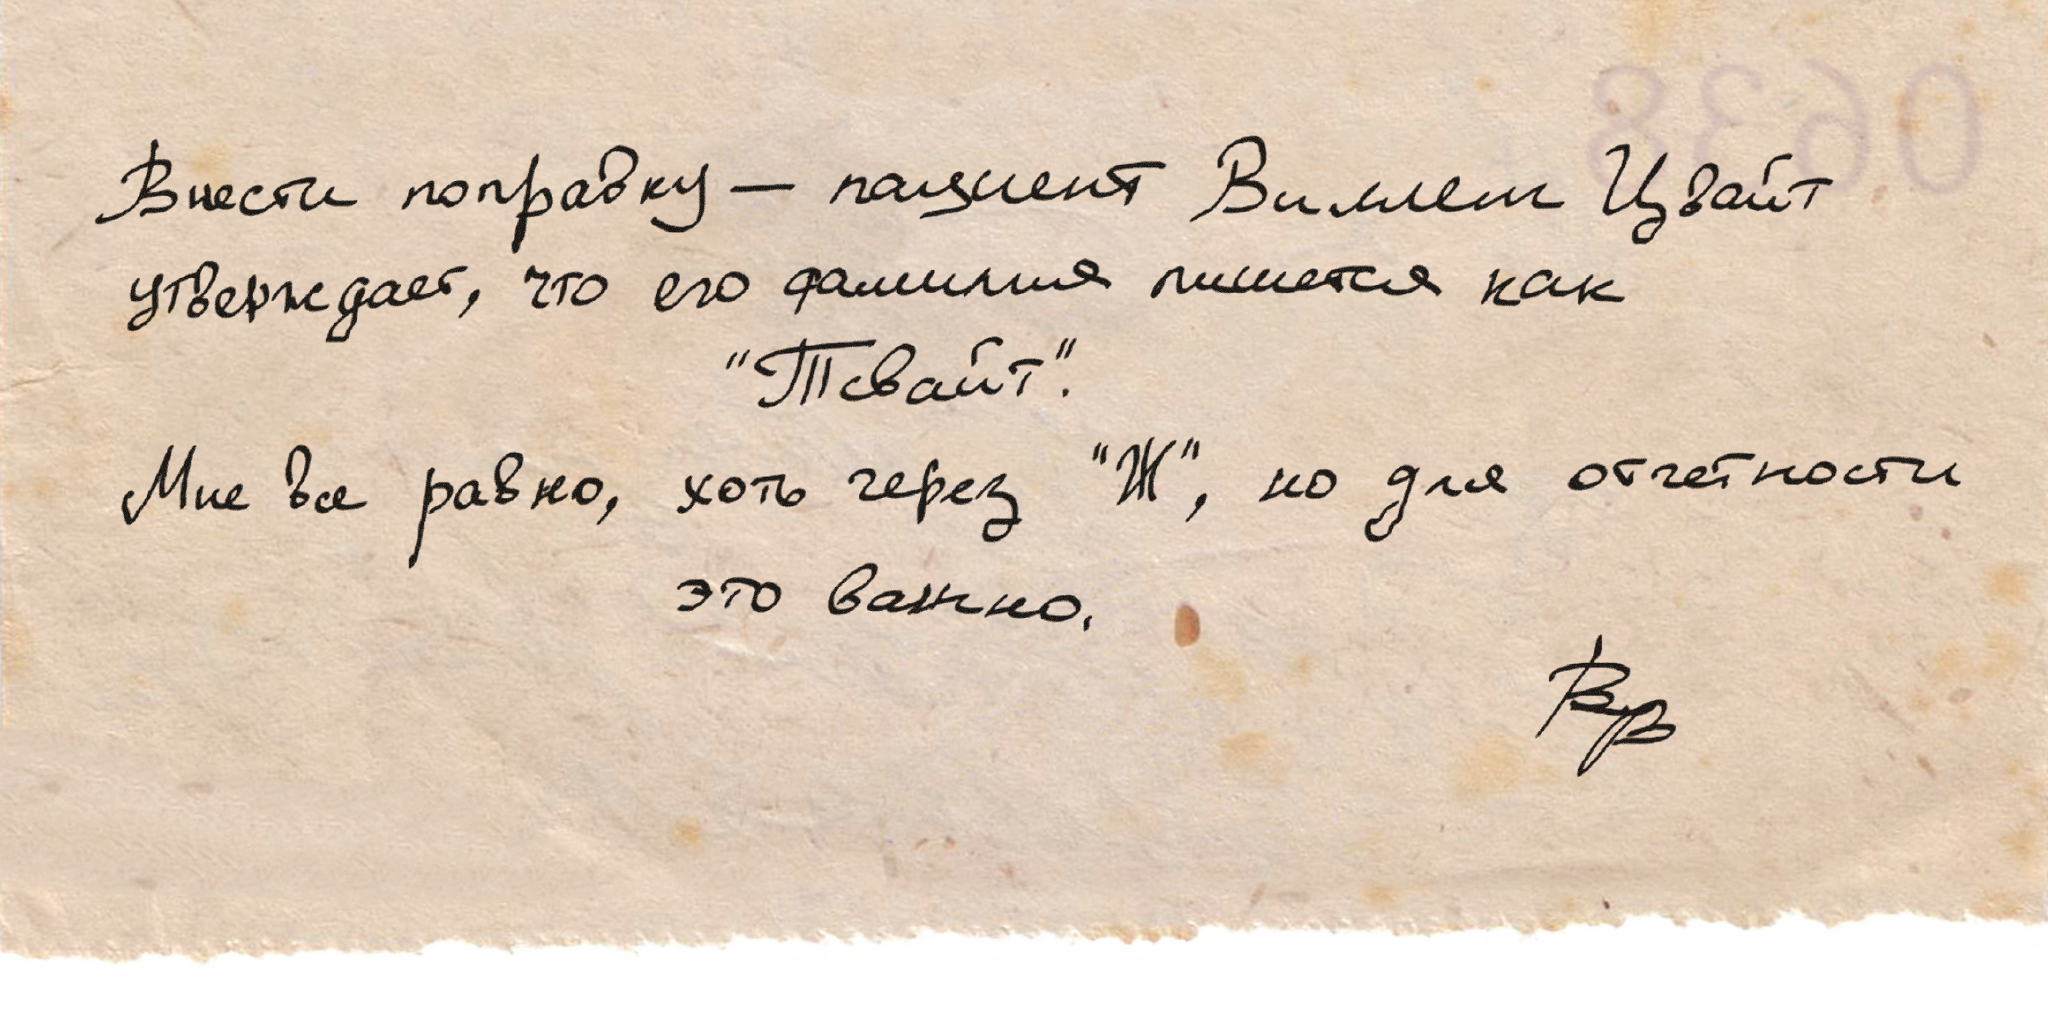 0638
Внести поправку — пациент Виллем Цвайт
утверждает, что его фамилия пишется как
"Тсвайт".
Мне все равно, хоть через "Ж", но для отчетности
это важно.
Вр